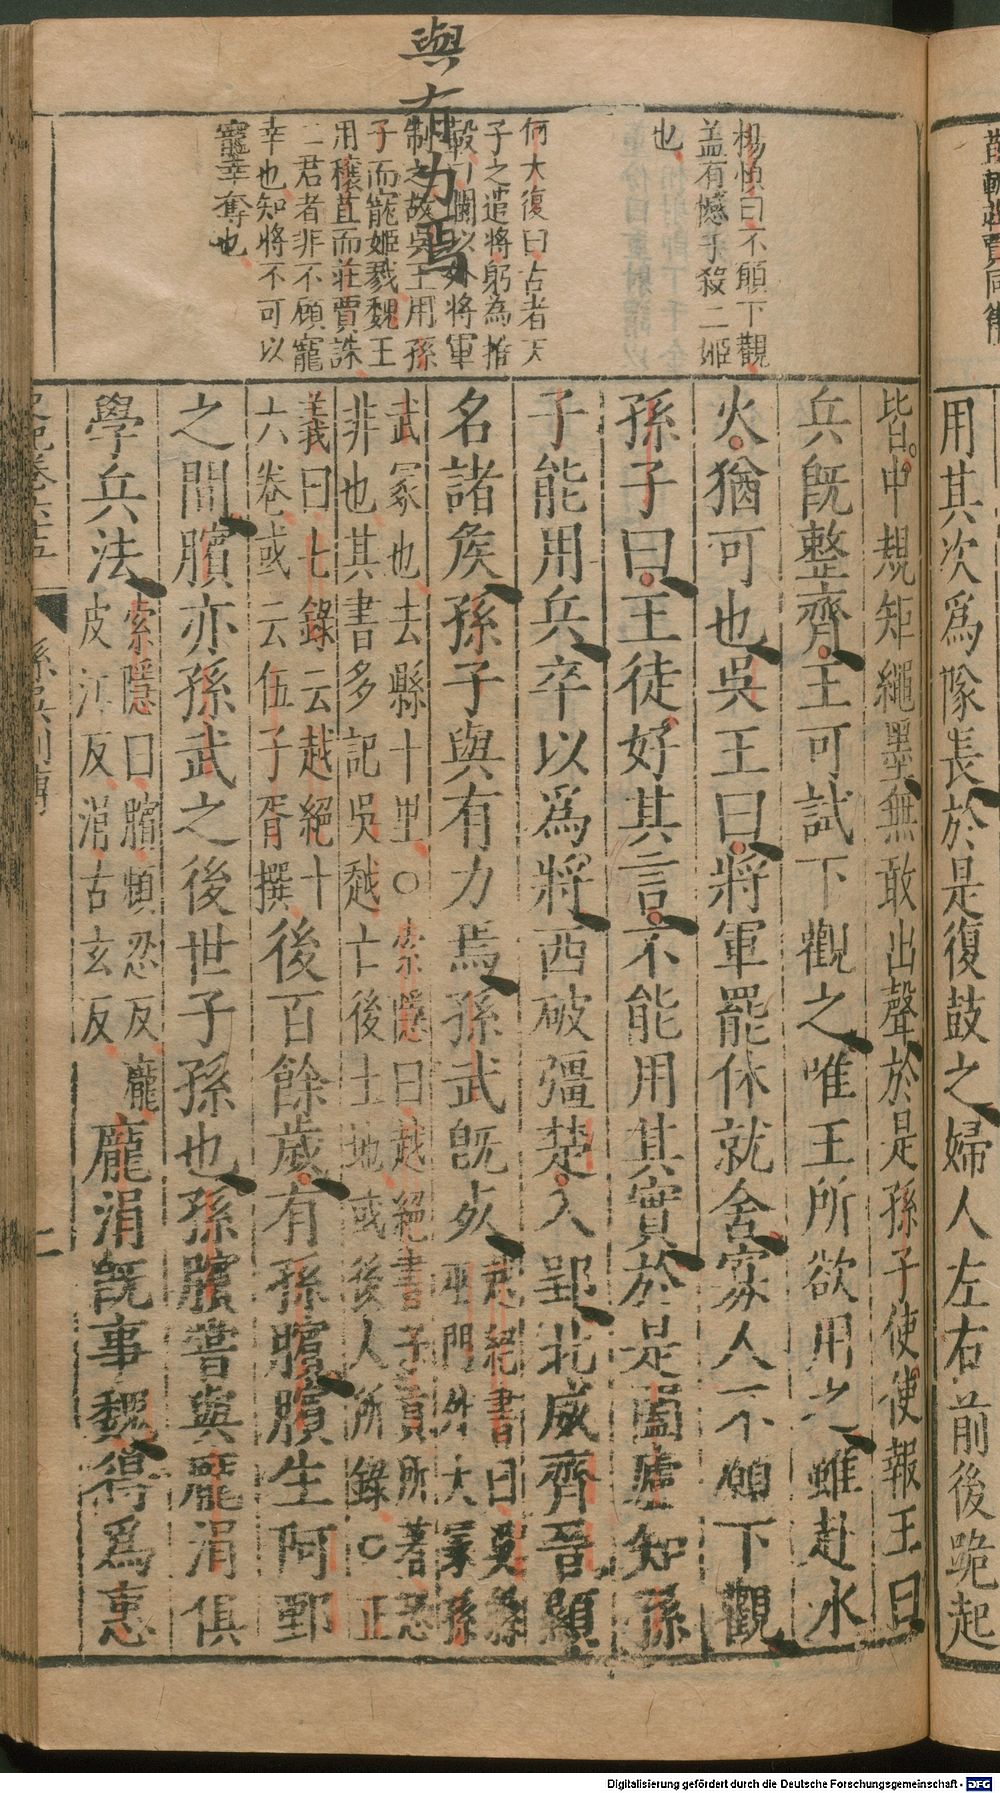 用其次爲隊長於是復鼓之婦人左右前後跪起
皆中規矩繩墨無敢出聲於是孫子使使報王曰
兵既整齊王可試下觀之唯王所欲用之雖赴水
火猶可也吳王曰將軍罷休就舍寡人不願下觀
孫子曰王徒好其言不能用其實於是闔廬知孫
子能用兵卒以爲將西破彊楚入郢北威齊晉顯
名諸矦孫子與有力焉孫武既死
越絕書曰吳縣
巫門外大冢孫
武冢也去縣十里○索隱曰越絕書子貢所著恐
非也其書多記吳越亡後土地或後人所錄○正
義曰七錄云越絕十
六卷或云伍子胥撰
後百餘歲有孫臏臏生阿鄄
之間臏亦孫武之後世子孫也孫臏嘗與龐涓俱
學兵法
索隱曰臏頻忍反龐
皮江反涓古玄反
龐涓既事魏得爲惠
楊慎曰不願下觀
盖有憾于殺二姬
也
何大復曰古者天
子之遣將躬為推
轂曰閫以外將軍
制之故吳王用孫
子而寵姬戮魏王
用穰苴而莊賈誅
二君者非不顧寵
幸也知將不可以
寵幸奪也
與有力焉
孫吳列傳
二
Digitalisierung gefördert durch die Deutsche Forschungsgemeinschaft - DFG